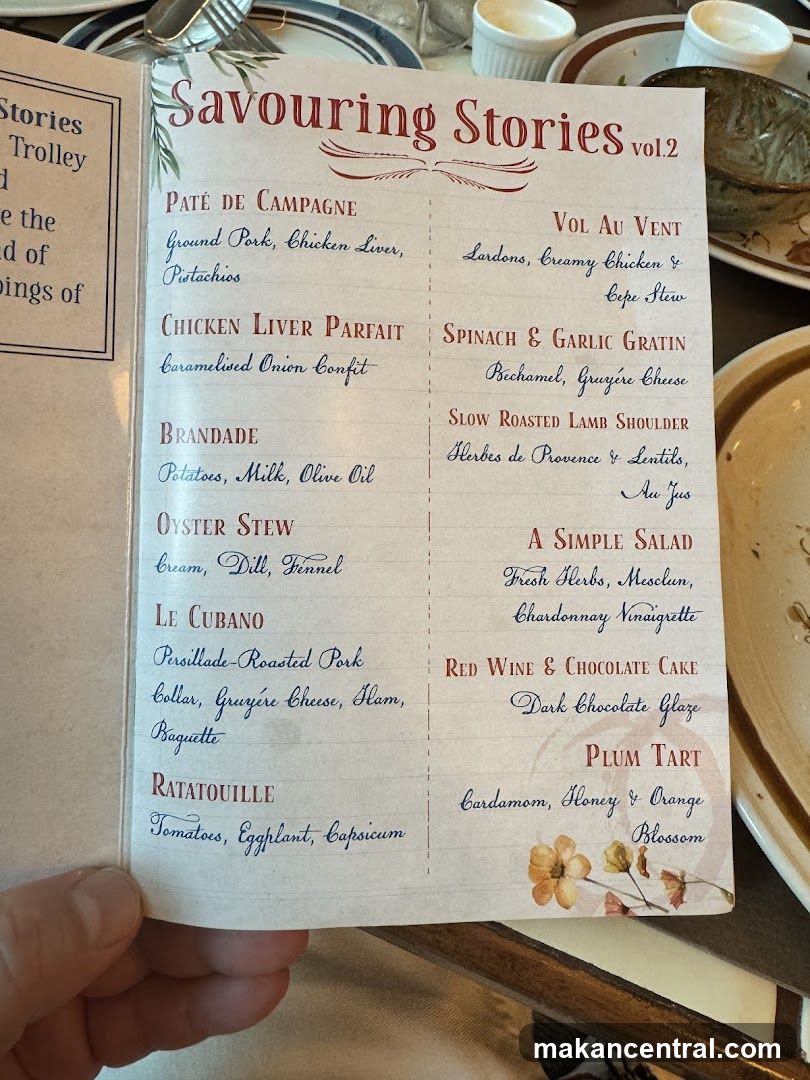 Stories
Trolley
d
e the
d of
pings of
Savouring Stories vol.2
Paté de Campagne
Ground Pork, Chicken Liver,
Pistachios
Chicken Liver Parfait
Caramelised Onion Confit
Brandade
Potatoes, Milk, Olive Oil
Oyster Stew
Cream, Dill, Fennel
Le Cubano
Persillade-Roasted Pork
Collar, Gruyére Cheese, Ham,
Baguette
Ratatouille
Tomatoes, Eggplant, Capsicum
Vol Au Vent
Lardons, Creamy Chicken &
Cepe Stew
Spinach & Garlic Gratin
Bechamel, Gruyére Cheese
Slow Roasted Lamb Shoulder
Herbes de Provence & Lentils,
Au Jus
A Simple Salad
Fresh Herbs, Mesclun,
Chardonnay Vinaigrette
Red Wine & Chocolate Cake
Dark Chocolate Glaze
Plum Tart
Cardamom, Honey & Orange
Blossom
makancentral.com